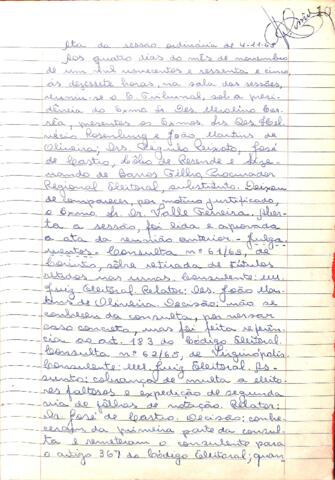 Ata da sessão ordinária de 4-11-65
Aos quatro dias do mês de novembro
de um mil novecentos e sessenta e cinco,
às dezessete horas, na sala das sessões,
reuniu-se o E. Tribunal, sob a presi-
dência do Exmo. Sr. Des.
presentes os Exmos. Srs. Des. Hel-
vécio Rosenburg e João Martins de
Oliveira; Drs. Régulo Peixoto, José
de Castro, Célio de Resende e
nando de Barros Filho, Procurador
Regional Eleitoral, substituto. Deixou
de comparecer, por motivo justificado,
o Exmo. Sr. Dr. Valle Ferreira. Aber-
ta a sessão, foi lida e aprovada
a ata da reunião anterior. Julga-
mentos: Consulta nº 61/65, de
sôbre retirada de títulos
nas urnas. Consulente: MM.
Juiz Eleitoral. Relator: Des. João Mar-
tins de Oliveira. Decisão: não se
conheceu da consulta, por versar
caso concreto, mas foi feita referên-
cia ao art. 183 do Código Eleitoral.
Consulta nº 62/65, de Virginópolis.
Consulente: MM. Juiz Eleitoral. As-
sunto: cobrança de multa a eleito-
res faltosos e expedição de segunda
via de fôlhas de votação. Relator:
Dr. José de Castro. Decisão: conhe-
ceram da primeira parte da consul-
ta e remeteram o consulente para
o artigo 367 do Código Eleitoral; quan-